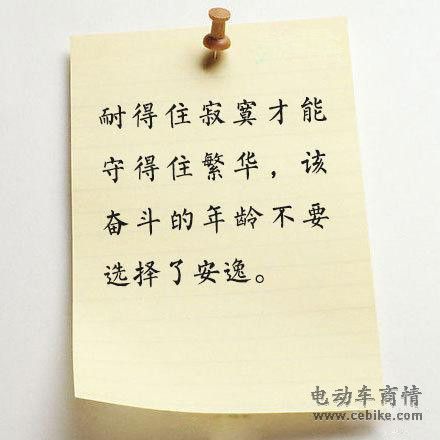 耐得住寂寞才能
守得住繁华，该
奋斗的年龄不要
选择了安逸。
电动车商情
www.cebike.com